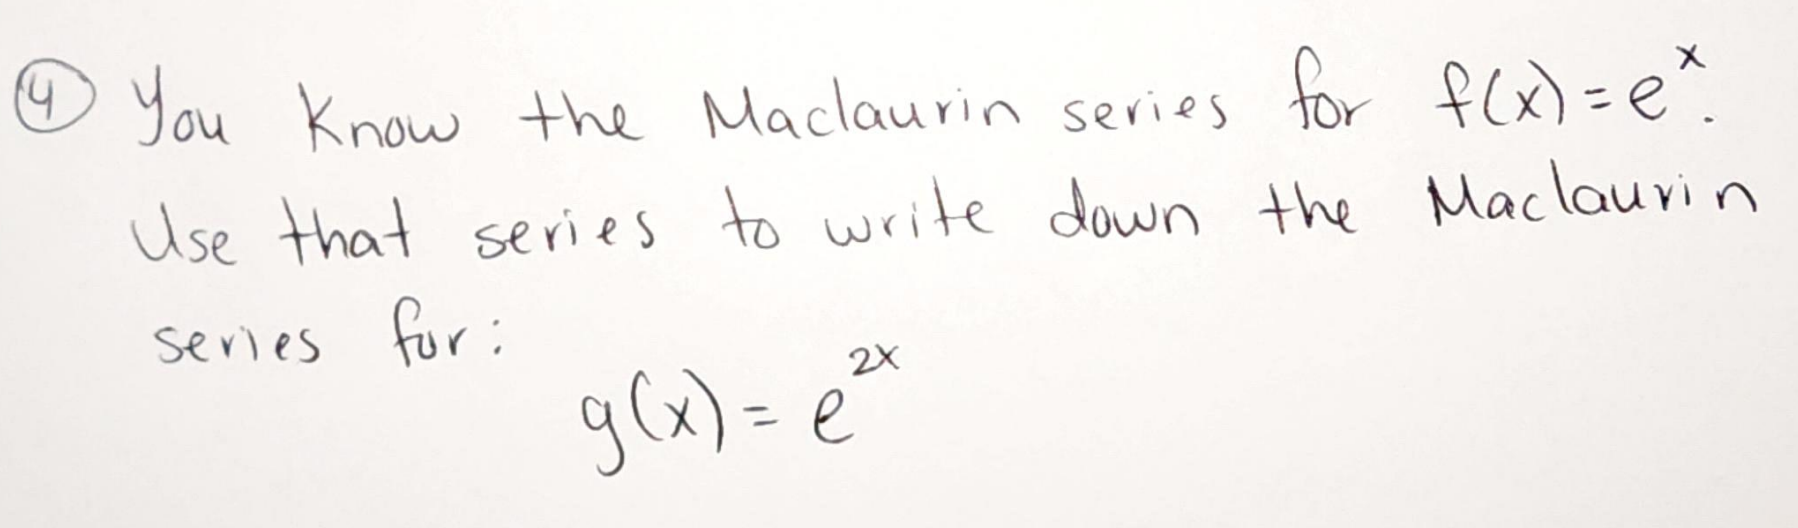 ④ You know the Maclaurin series for f(x) = e^x.
Use that series to write down the Maclaurin
series for:
g(x) = e^2x